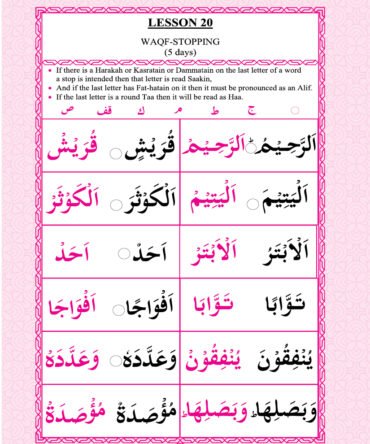 LESSON 20
WAQF-STOPPING
(5 days)
• If there is a Harakah or Kasratain or Dammatain on the last letter of a word
a stop is intended then that letter is read Saakin,
• And if the last letter has Fat-hatain on it then it must be pronounced as an Alif.
• If the last letter is a round Taa then it will be read as Haa.
○ ج ط م ك قف ص
اَلرَّحِيْمُ ○ اَلرَّحِيْمْ قُرَيْشٍ ○ قُرَيْشْ
اَلْيَتِيْمَ ○ اَلْيَتِيْمْ اَلْكَوْثَرَ ○ اَلْكَوْثَرْ
اَلْاَبْتَرُ اَلْاَبْتَرْ اَحَدٌ ○ اَحَدْ
تَوَّابًا تَوَّابَا اَفْوَاجًا ○ اَفْوَاجَا
يُنْفِقُوْنَ يُنْفِقُوْنْ وَعَدَّدَهٗ ○ وَعَدَّدَهْ
وَبَصَلِهَا وَبَصَلِهَا مُؤْصَدَةٌ مُؤْصَدَةْ